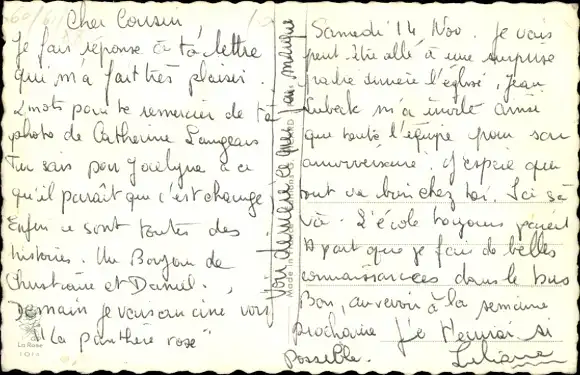 Cher Cousin
Je fais réponse à ta lettre
qui m'a fait très plaisir
2 mots pour te remercier de ta
photo de Catherine Langeais
Tu sais pour Jocelyne à ce
qu'il paraît que c'est changé
Enfin ce sont toutes des
histoires. Un Bonjour de
Christiane et Daniel.
Demain je vais au ciné voir
"La panthère rose"
La Rose
1014
Voir derrière ce que j'ai marqué
Made in
Samedi 14 Nov. Je vais
peut être allé à une surprise
partie derrière l'église, Jean
Lubeck m'a invité ainsi
que toute l'équipe pour son
anniversaire. J'espère que
tout va bien chez toi. Ici sa
va. L'école toujours pareil
A part que je fais de belles
connaissances dans le bus
Bon, au revoir à la semaine
prochaine Je si
possible. Liliane